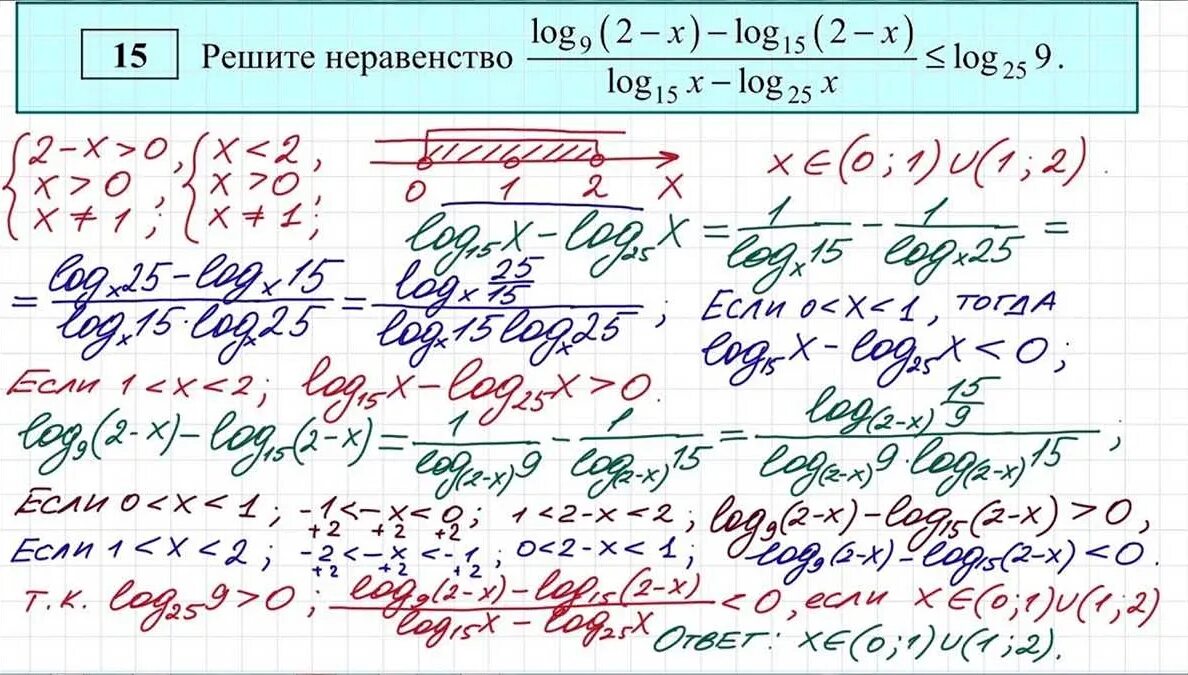 15 Решите неравенство (log₉(2−x)−log₁₅(2−x))/(log₁₅x−log₂₅x) ≤ log₂₅9.
{2−x>0, x>0, x≠1; {x<2, x>0, x≠1; 0 1 2 x x∈(0;1)∪(1;2).
log₁₅x−log₂₅x = 1/logₓ15 − 1/logₓ25 =
= (logₓ25−logₓ15)/(logₓ15·logₓ25) = (logₓ 25/15)/(logₓ15 logₓ25); Если 0<x<1, тогда
log₁₅x−log₂₅x<0;
Если 1<x<2; log₁₅x−log₂₅x>0.
log₉(2−x)−log₁₅(2−x) = 1/log₍₂₋ₓ₎9 − 1/log₍₂₋ₓ₎15 = (log₍₂₋ₓ₎ 15/9)/(log₍₂₋ₓ₎9·log₍₂₋ₓ₎15);
Если 0<x<1; −1<−x<0; 1<2−x<2; log₉(2−x)−log₁₅(2−x)>0,
+2 +2 +2
Если 1<x<2; −2<−x<−1; 0<2−x<1; log₉(2−x)−log₁₅(2−x)<0.
+2 +2 +2
т.к. log₂₅9>0; (log₉(2−x)−log₁₅(2−x))/(log₁₅x−log₂₅x) <0, если x∈(0;1)∪(1;2)
Ответ: x∈(0;1)∪(1;2).